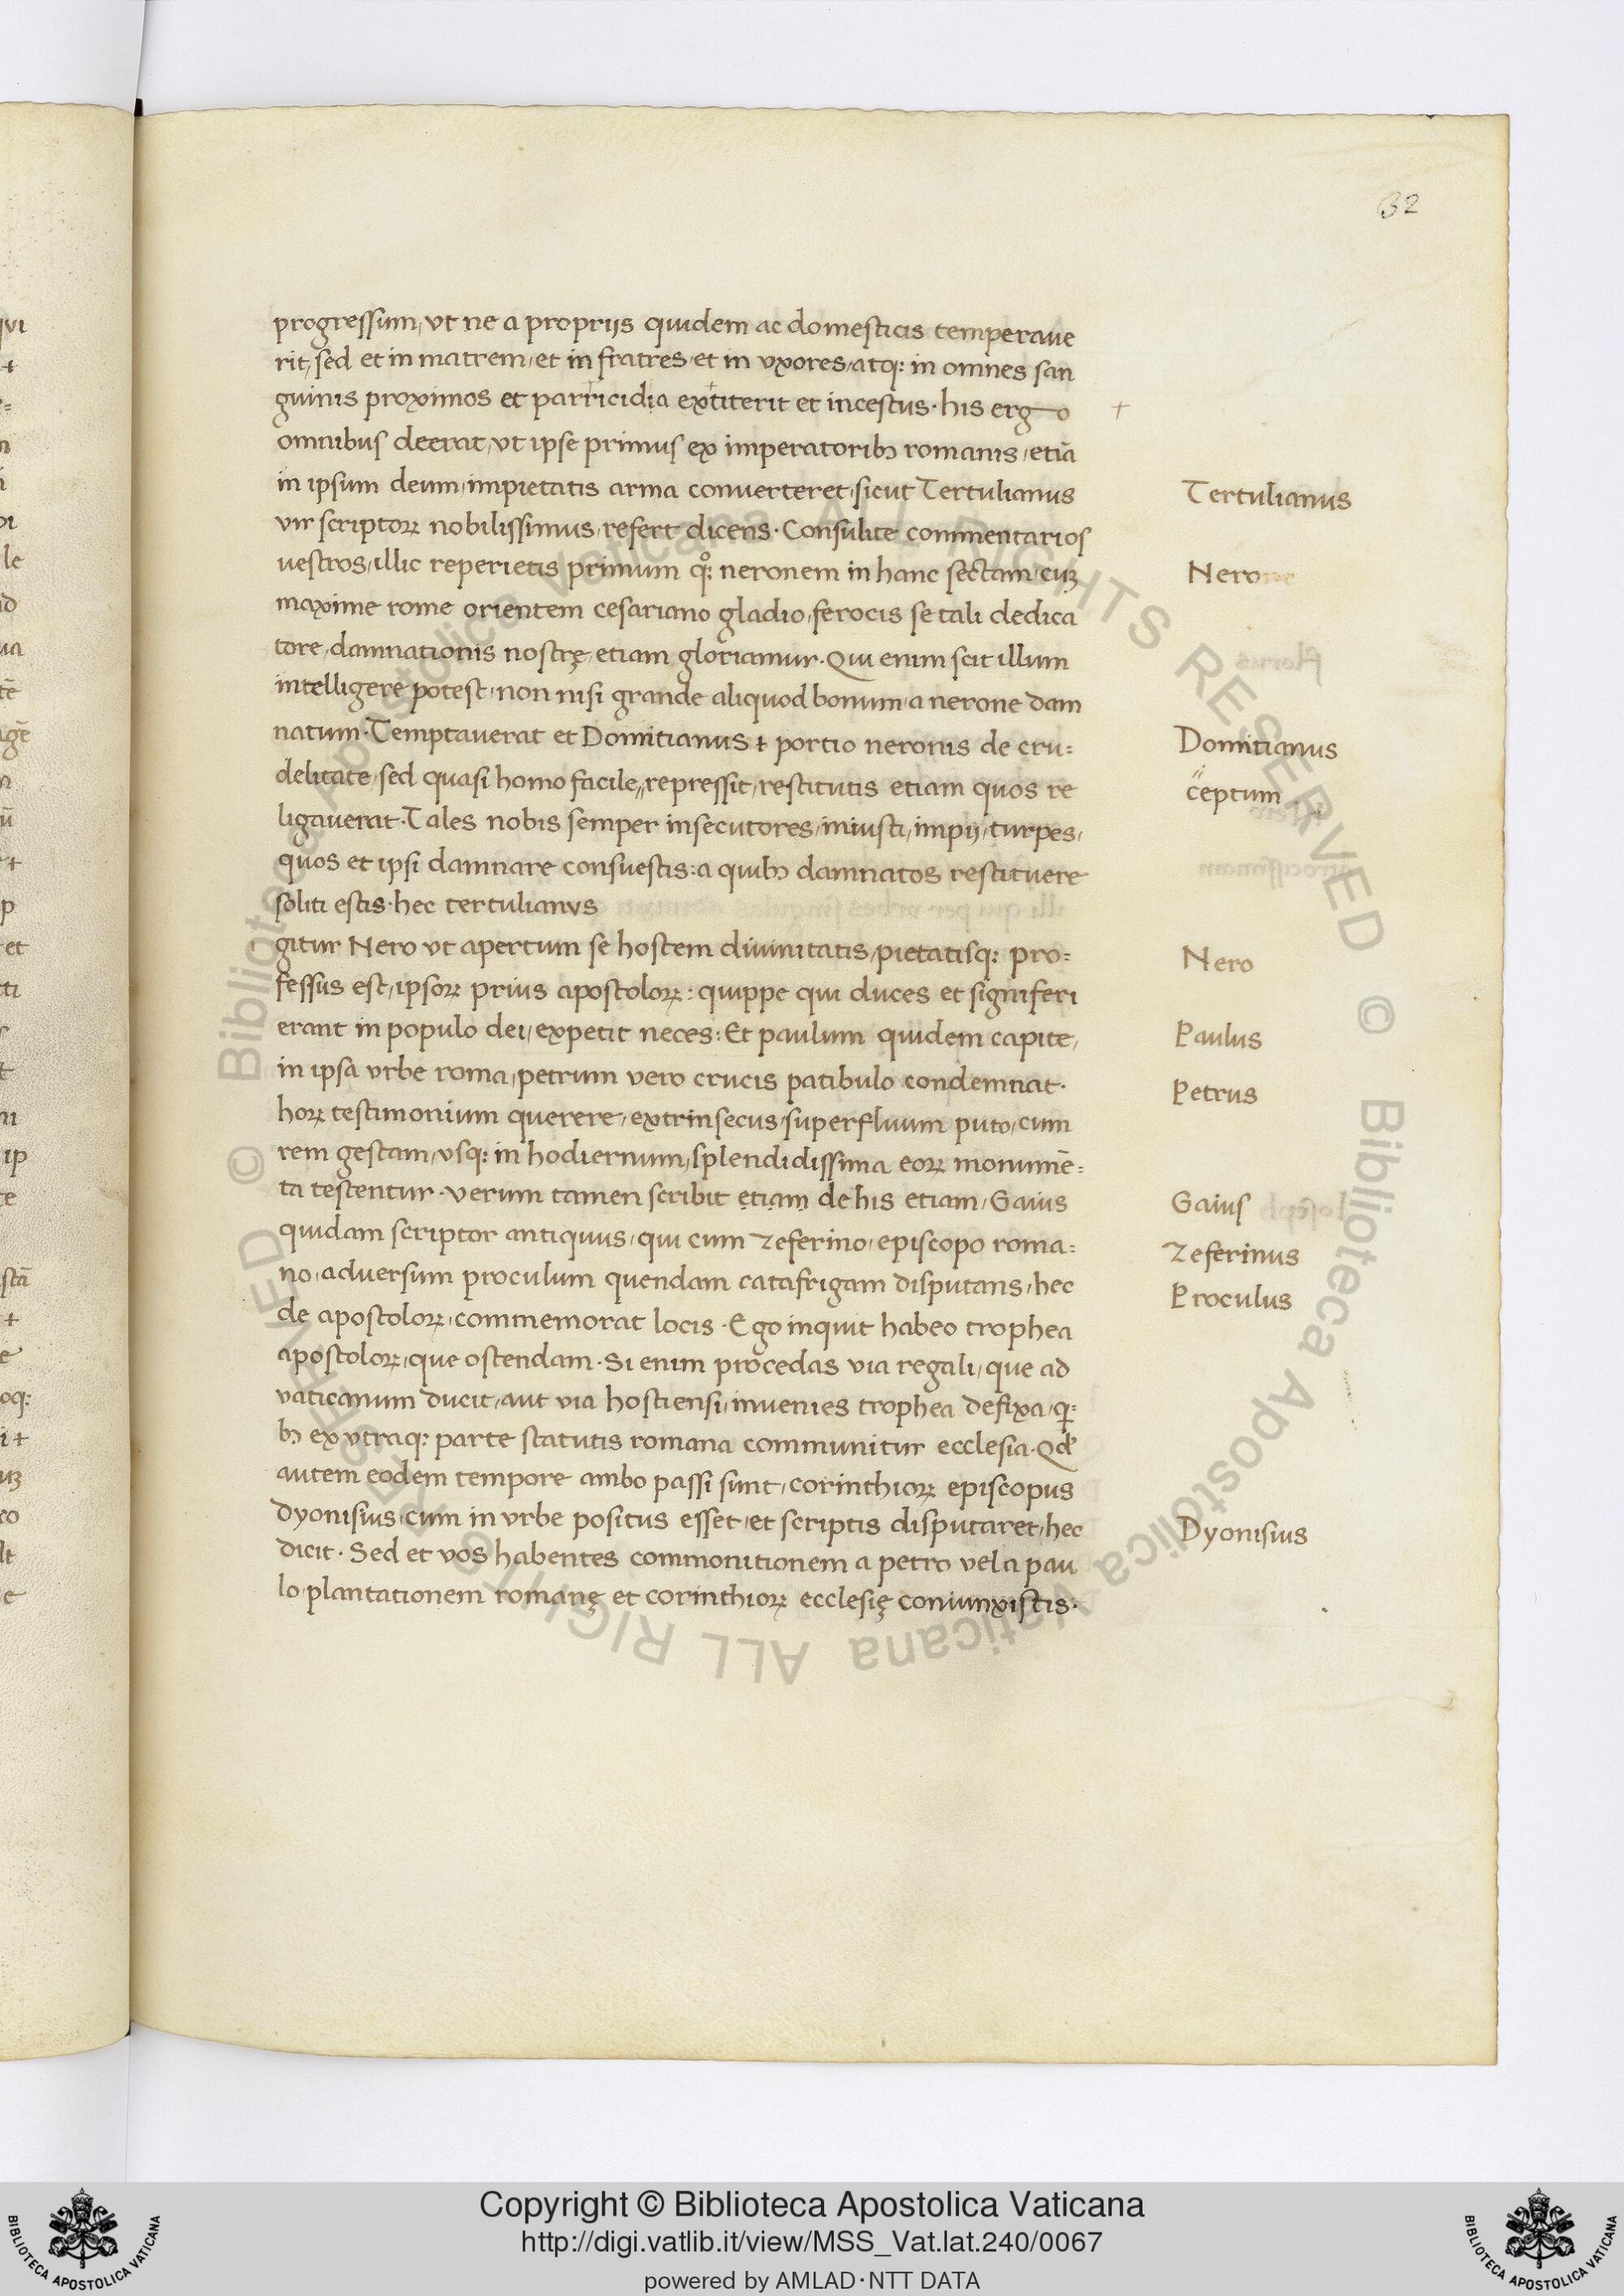 32
progressum, vt ne a proprijs quidem ac domesticis temperaue
rit, sed et in matrem, et in fratres, et in vxores, atq: in omnes san
guinis proximos et parricidia extiterit et incestus · his ergo +
omnibus deerat, vt ipse primus ex imperatoribꝫ romanis, etiā
in ipsum deum, impietatis arma conuerteret, sicut Tertulianus
Tertulianus
vir scriptoꝝ nobilissimus, refert dicens · Consulite commentarios
uestros, illic reperietis primum q̊: neronem in hanc sectam, cuꝫ
Nerone
maxime rome orientem cesariano gladio, ferocis se tali dedica
tore, damnationis nostrę, etiam gloriamur · Qui enim scit illum
intelligere potest, non nisi grande aliquod bonum, a nerone dam
natum · Temptauerat et Domitianus + portio neronis de cru=
Domitianus
delitate, sed quasi homo facile,, repressit, restitutis etiam quos re
,, ceptum
ligauerat · Tales nobis semper insecutores, iniusti, impij, turpes,
quos et ipsi damnare consuestis: a quibꝫ damnatos restituere
soliti estis · hec tertulianus
igitur Nero vt apertum se hostem diuinitatis, pietatisq: pro=
Nero
fessus est, ipsoꝝ prius apostoloꝝ: quippe qui duces et signiferi
erant in populo dei, expetit neces: Et paulum quidem capite,
Paulus
in ipsa vrbe roma, petrum vero crucis patibulo condemnat ·
Petrus
hoꝝ testimonium querere, extrinsecus, superfluum puto, cum
rem gestam, vsq: in hodiernum, splendidissima eoꝝ monumē=
ta testentur · verum tamen scribit etiam de his etiam, Gaius
Gaius
quidam scriptor antiquus, qui cum Zeferino, episcopo roma=
Zeferinus
no, aduersum proculum quendam catafrigam disputans, hec
Proculus
de apostoloꝝ, commemorat locis · Ego inquit habeo trophea
apostoloꝝ, que ostendam · Si enim procedas via regali, que ad
vaticanum ducit, aut via hostiensi, inuenies trophea defixa, q:
bꝫ ex vtraq: parte statutis romana communitur ecclesia · Qđ
autem eodem tempore ambo passi sunt, corinthioꝝ episcopus
Dyonisius, cum in vrbe positus esset, et scriptis disputaret, hec
Dyonisius
dicit · Sed et vos habentes commonitionem a petro vel a pau
lo, plantationem romanę et corinthioꝝ ecclesię coniunxistis ·
Copyright © Biblioteca Apostolica Vaticana
http://digi.vatlib.it/view/MSS_Vat.lat.240/0067
powered by AMLAD·NTT DATA
BIBLIOTECA APOSTOLICA VATICANA
BIBLIOTECA APOSTOLICA VATICANA
© Biblioteca Apostolica Vaticana ALL RIGHTS RESERVED © Biblioteca Apostolica Vaticana ALL RIGHTS RESERVED